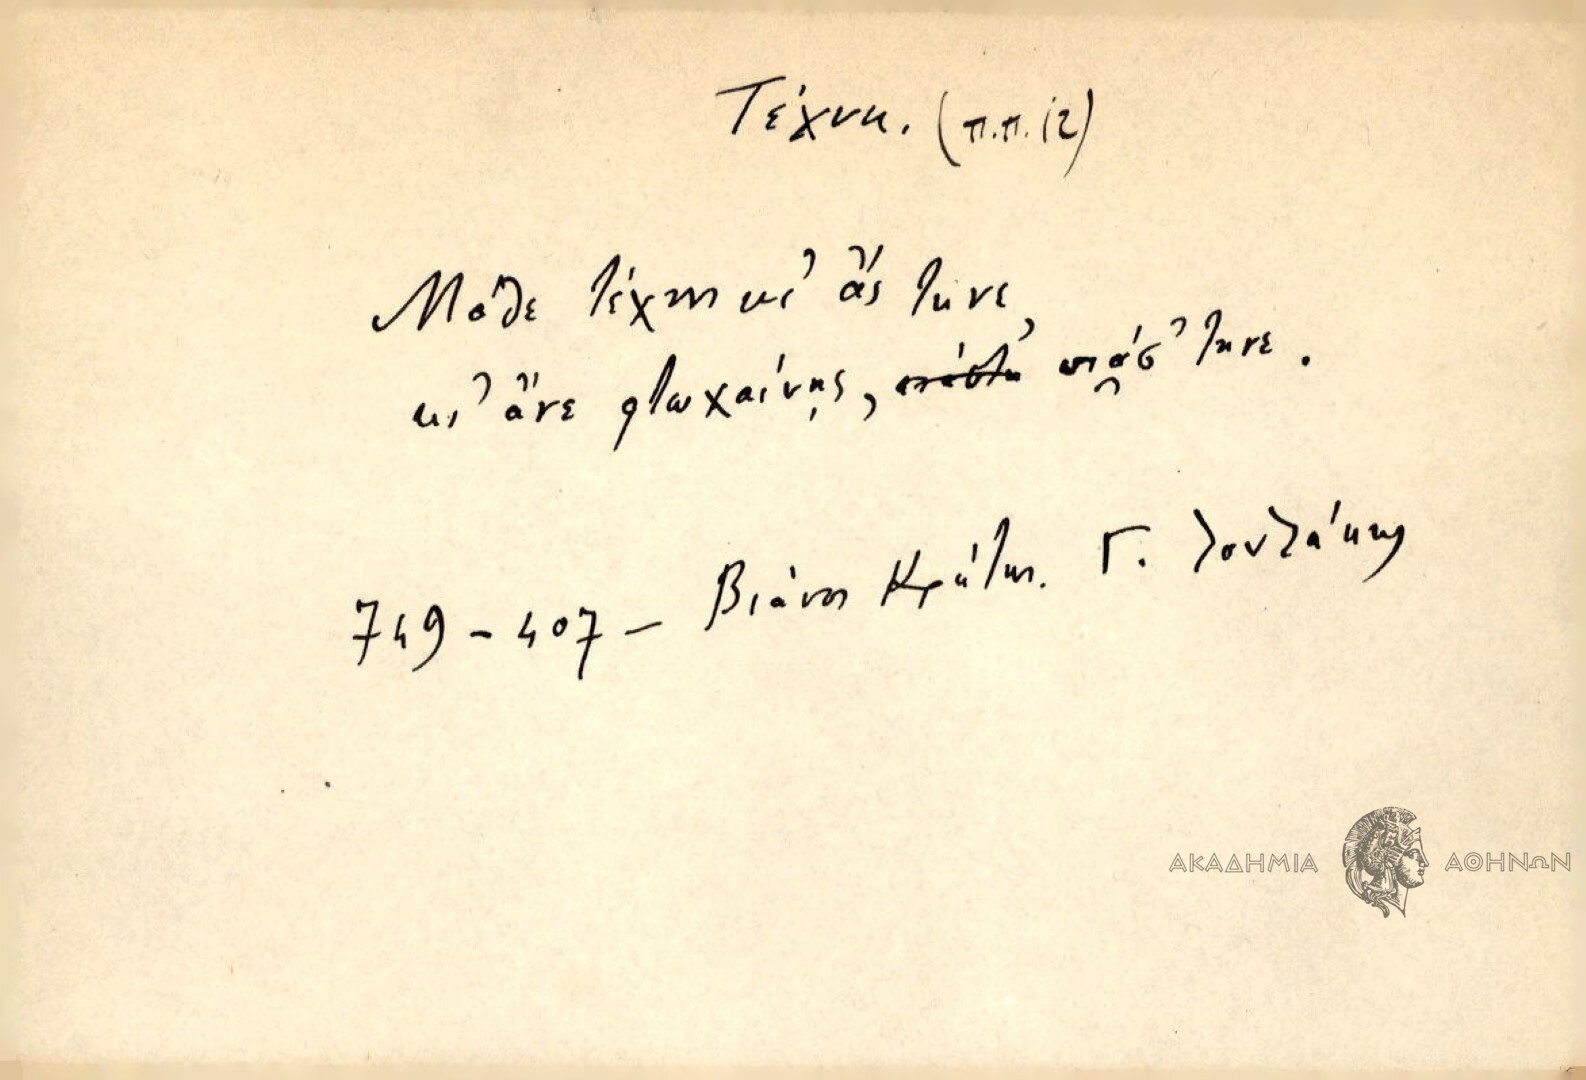 Τέχνη. (π.π. 12)
Μάθε τέχνη κι' ἄς τηνε,
κι' ἄνε φτωχαίνῃς, πιάσ' τηνε.
749 - 407 - Βιάνος Κρήτης. Γ.
ΑΚΑΔΗΜΙΑ ΑΘΗΝΩΝ